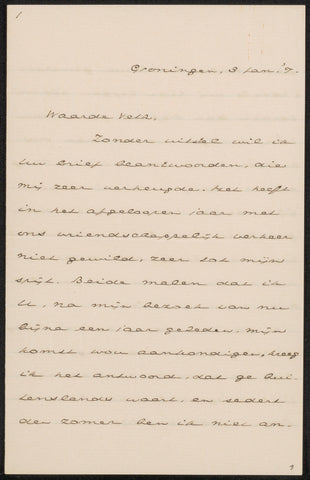 1
Groningen, 3 Jan. '7.
Waarde Veth,
Zonder uitstel wil ik
uw brief beantwoorden, die
mij zeer verheugde. Het heeft
in het afgeloopen jaar met
ons vriendschappelijk verkeer
niet gewild, zeer tot mijn
spijt. Beide malen dat ik
U, na mijn bezoek van nu
bijna een jaar geleden, mijn
komst wou aankondigen, kreeg
ik het antwoord, dat ge bui-
tenslands waart, en sedert
den zomer ben ik niet an-